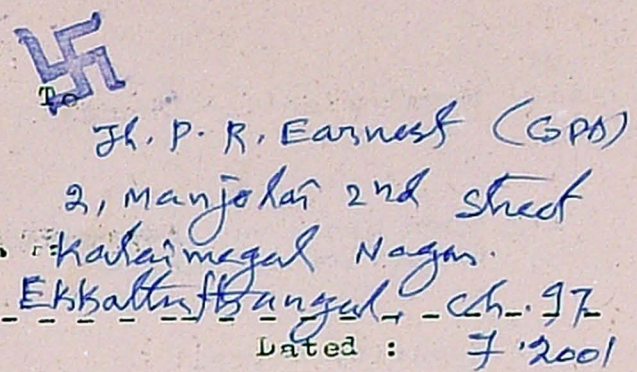 To
Th. P. R. Earnest (GPA)
2, Manjolai 2nd Street
Kalaimagal Nagar.
Ekkattuthangal, Ch. 97
Dated : 7.2001